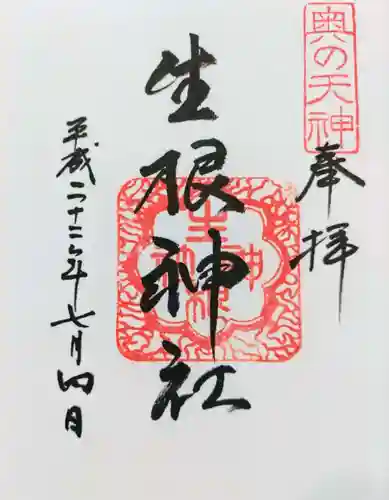 奥の天神
奉拝
生根神社
平成二十二年七月四日